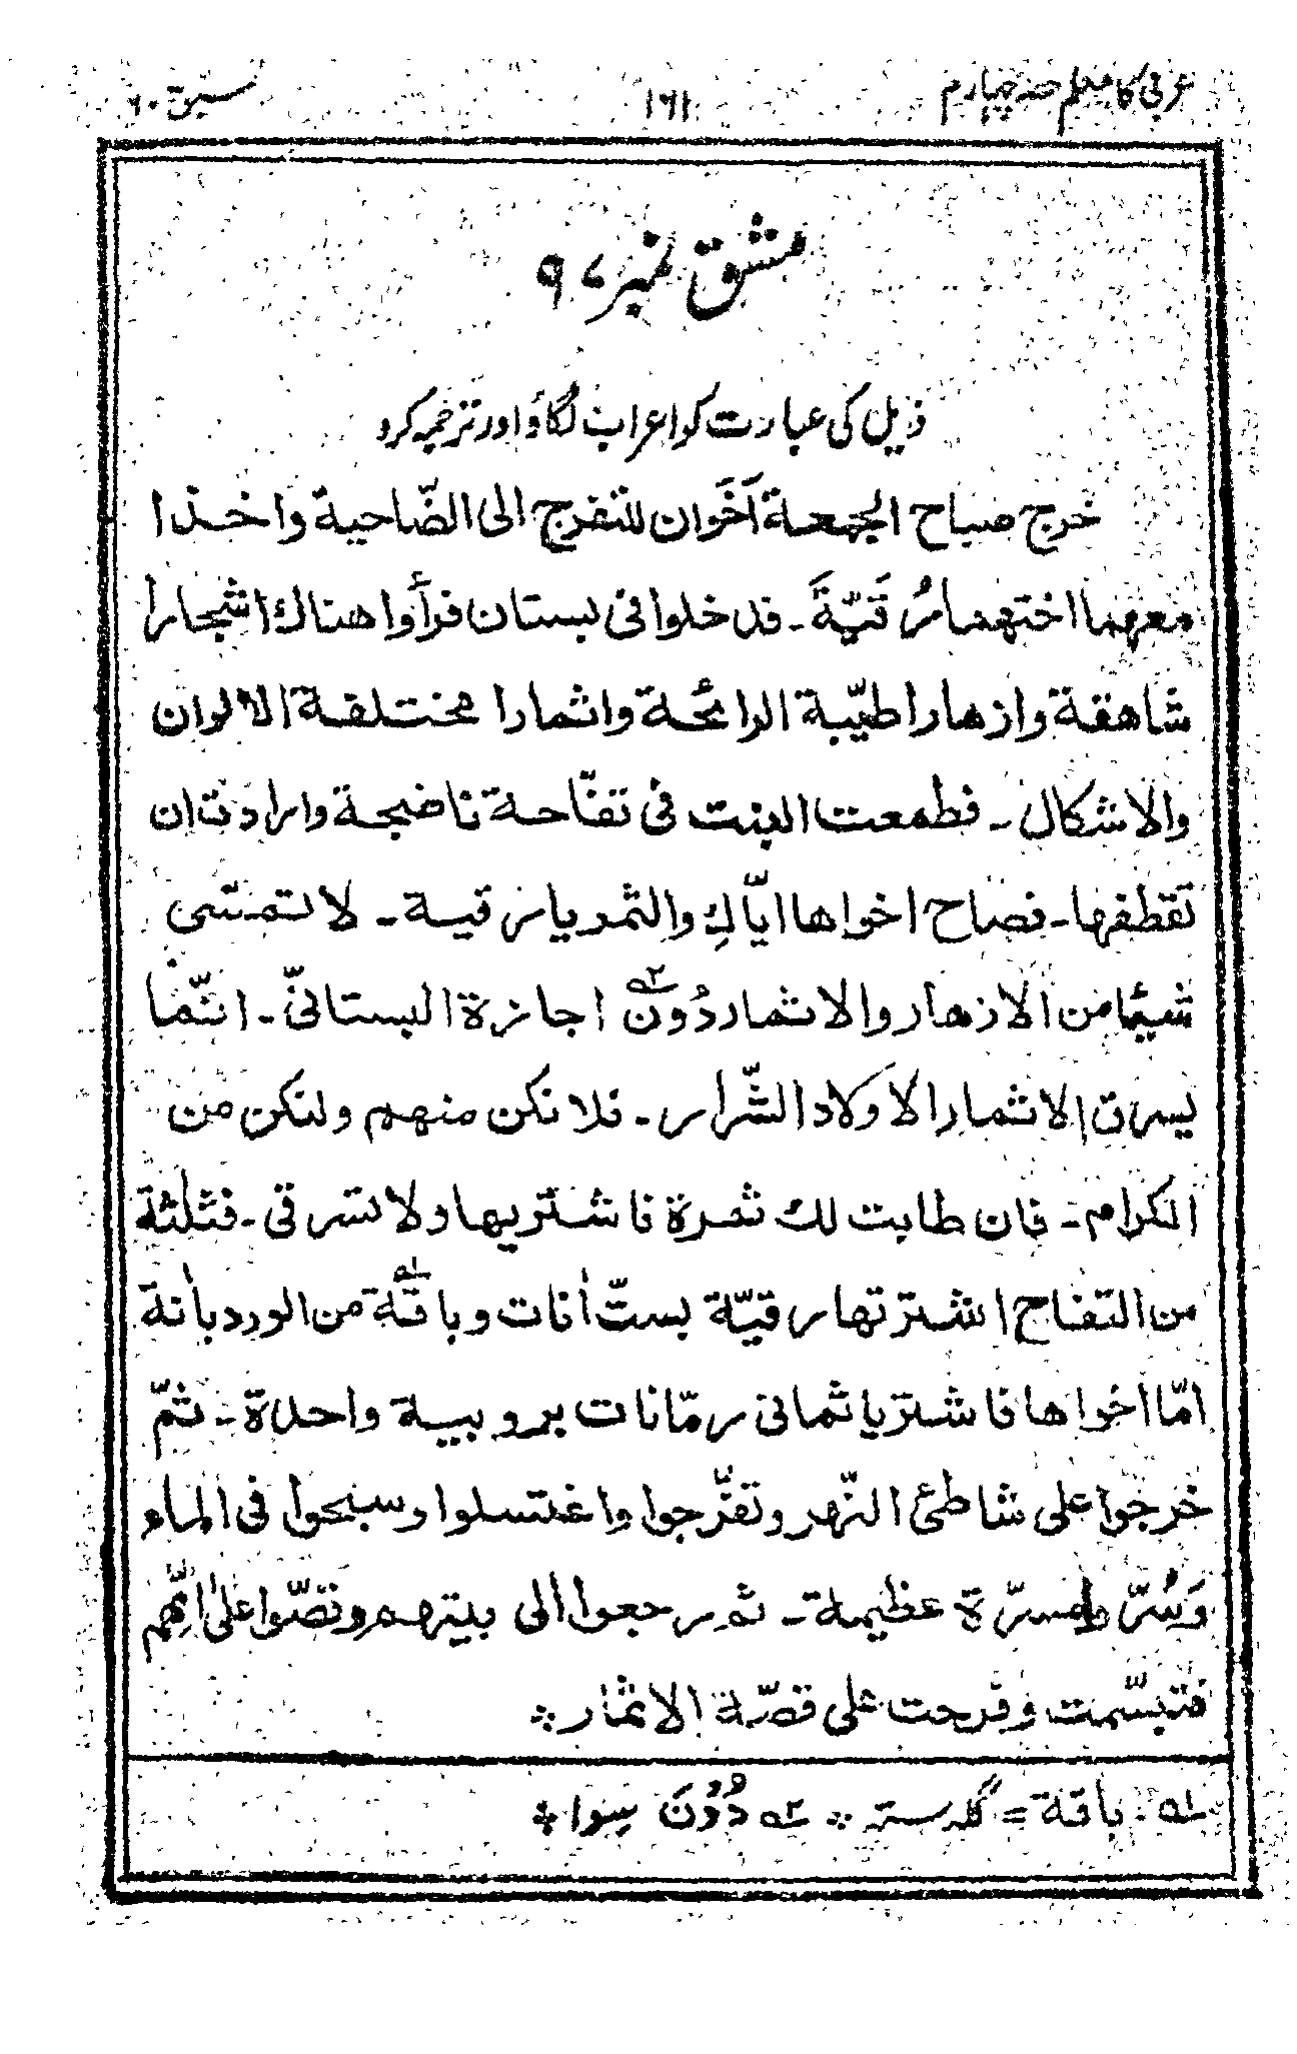 عربی کا معلم حصہ چہارم ۱۶۱ سبق ۶۰
مشق نمبر ۹۷
ذیل کی عبارت کو اعراب لگاؤ اور ترجمہ کرو
خرج صباح الجمعة اَخَوان للتفرج الى الضّاحية واخذا
معهما اختهما رُقَيّةَ ۔ فدخلوا فى بستان فرأوا هناك اشجارا
شاهقة وازهارا طيّبة الرائحة واثمارا مختلفة الالوان
والاشكال ۔ فطمعت البنت فى تفّاحة ناضجة وارادت ان
تقطفها ۔ فصاح اخواها ايّاكِ والثمر يا رقية ۔ لا تمسّى
شيئا من الازهار والاثمار دُون ۲؎ اجازة البستانىّ ۔ انّما
يسرق الاثمار الاولاد الشّرار ۔ فلا نكن منهم ولنكن من
الكرام ۔ فان طابت لك ثمرة فاشتريها ولا تسرقى ۔ فثلٰثة
من التفاح اشترتها رقيّة بستّ اٰنات وباقة ۱؎ من الورد باٰنة
امّا اخواها فاشتريا ثمانى رمّانات بروبية واحدة ۔ ثمّ
خرجوا على شاطئ النّهر وتفرّجوا واغتسلوا وسبحوا فى الماء
وَسُرّوا مسرّة عظيمة ۔ ثم رجعوا الى بيتهم وقصّوا علىٰ امّهم
فتبسّمت وفرحت على قصّة الاثمار ۞
۱؎ باقة = گلدستہ ۞ ۲؎ دُوْنَ سِوا ۞